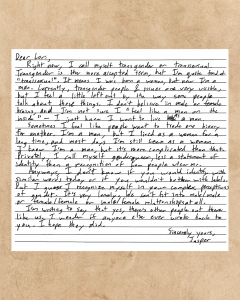 Dear Lou,
Right now, I call myself transgender or transsexual.
Transgender is the more accepted term, but I'm quite fond of
"transsexual". It means I was born a woman, but now I'm a
man. Currently, transgender people & issues are very visible,
but I feel a little left out by the way some people
talk about these things. I don't believe in male or female
brains, and I'm not sure I "feel like a man on the
inside" – I just knew I want to live as a man.
Sometimes I feel like people want to
for another. I'm a man, but I lived as a woman for a
long time, and most days I'm still seen as a woman.
I know I'm a man, but it's more complicated than that.
Privately, I call myself genderqueer, less a statement of
identity than a recognition of how people view me.
Anyways, I don't know if you would identify with
similar words today or if you wouldn't bother with labels.
But I guess I recognize myself in your complex perceptions
of gender. It's very lonely to not fit into male/male
or female/female or male/female relationships at all.
I'm writing to say that yes, there's other people out there
like us. I wonder if anyone else ever wrote back to
you. I hope they did.
Sincerely yours,
Jasper